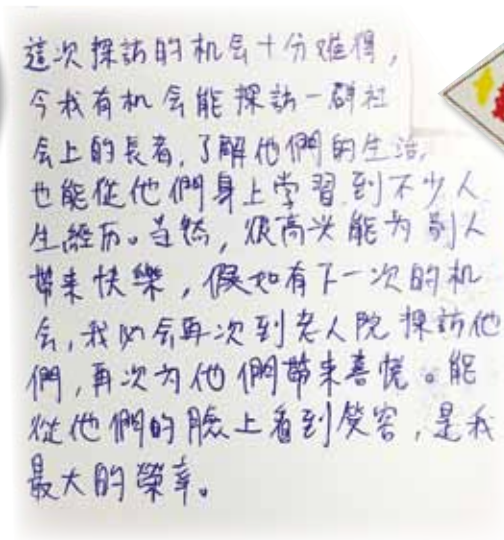 這次探訪的机会十分难得，
令我有机会能探訪一群社
会上的長者，了解他們的生活，
也能從他們身上学習到不少人
生經历。当然，很高兴能为別人
帶来快樂，假如有下一次的机
会，我必会再次到老人院探訪他
們，再次为他們帶来喜悅。能
從他們的臉上看到笑容，是我
最大的榮幸。